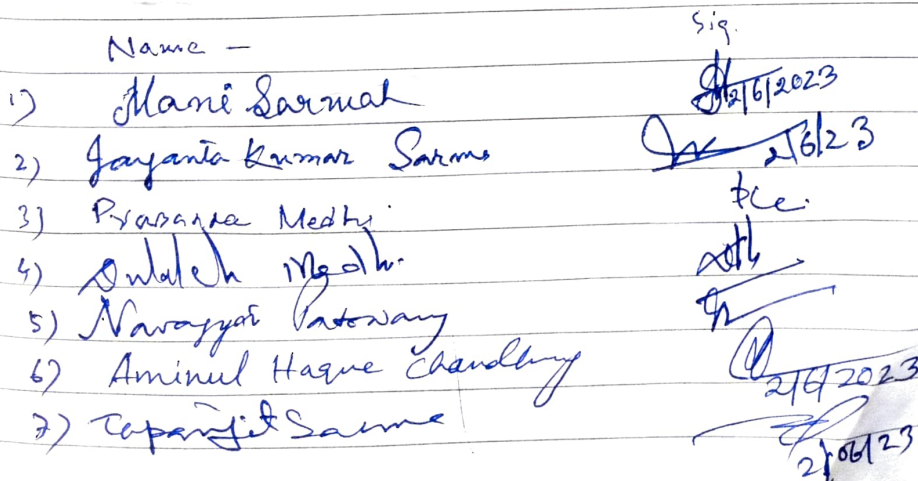 Name - Sig.
1) Mani Sarmah 2/6/2023
2) Jayanta Kumar Sarma 2/6/23
3) Prasanna Medhi
4) Medhi
5) Patowary
6) Aminul Haque Chaudhury 2/6/2023
7) Tapanjit Sarma 2/06/23